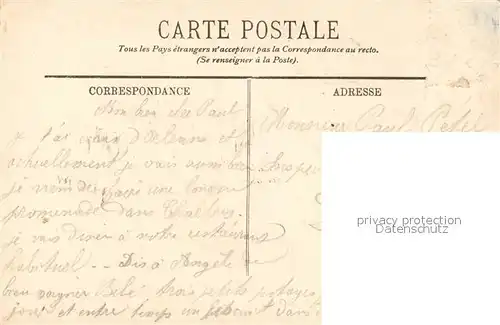 CARTE POSTALE
Tous les Pays étrangers n'acceptent pas la Correspondance au recto.
(Se renseigner à la Poste).
CORRESPONDANCE
ADRESSE
Mon bien cher Paul
je t'ai d'Orléans et
actuellement je vais aussi bien
je viens de faire une longue
promenade dans
je vais diner à notre restaurant
habituel -- Dis à Angèle
bien soigner Bébé trois petits potages
jour et entre temps un dans
Monsieur Paul
privacy protection
Datenschutz